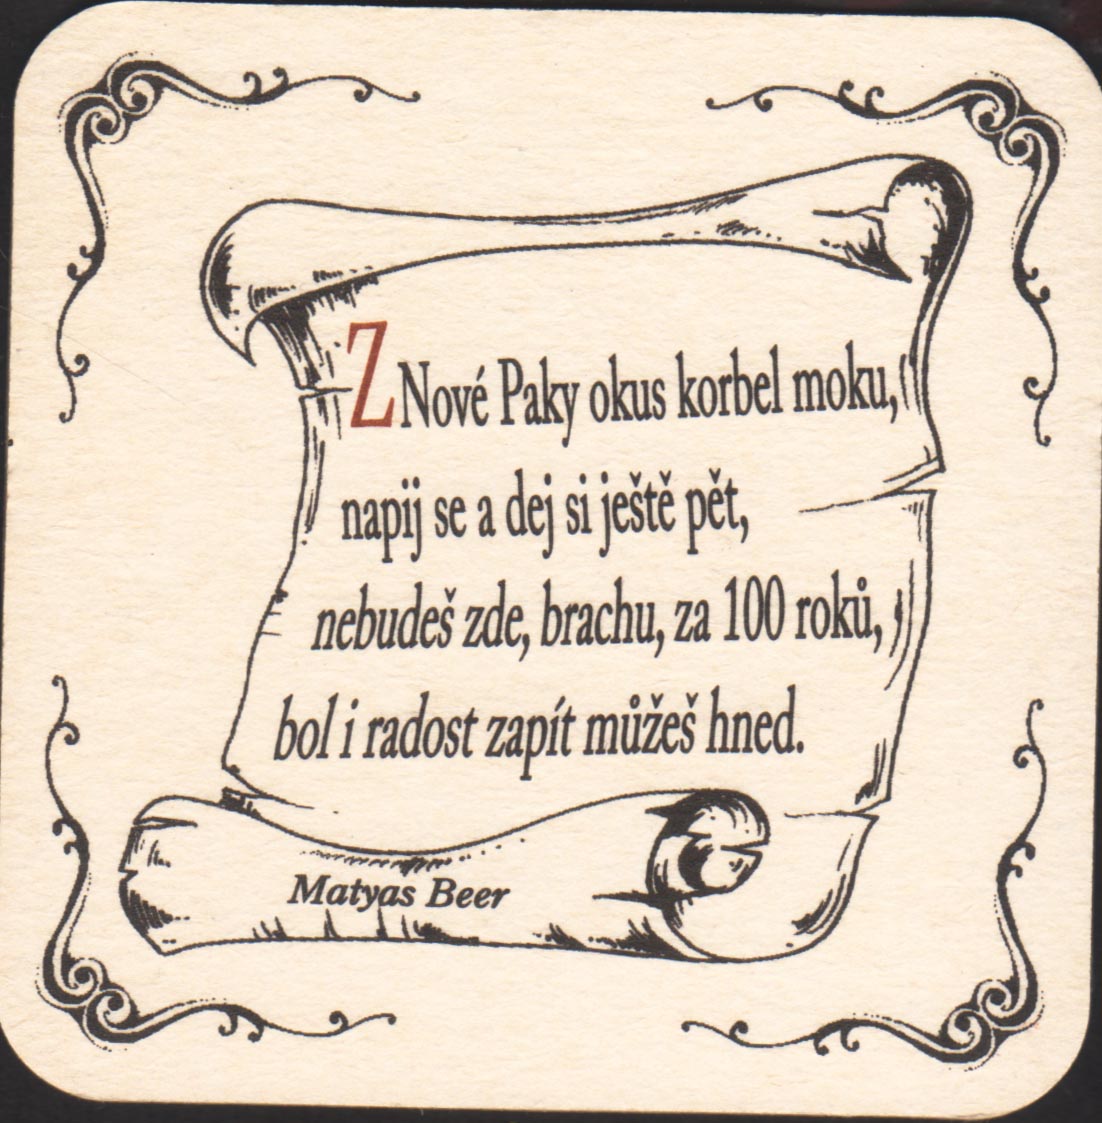 Z Nové Paky okus korbel moku,
napij se a dej si ještě pět,
nebudeš zde, brachu, za 100 roků,
bol i radost zapít můžeš hned.
Matyas Beer